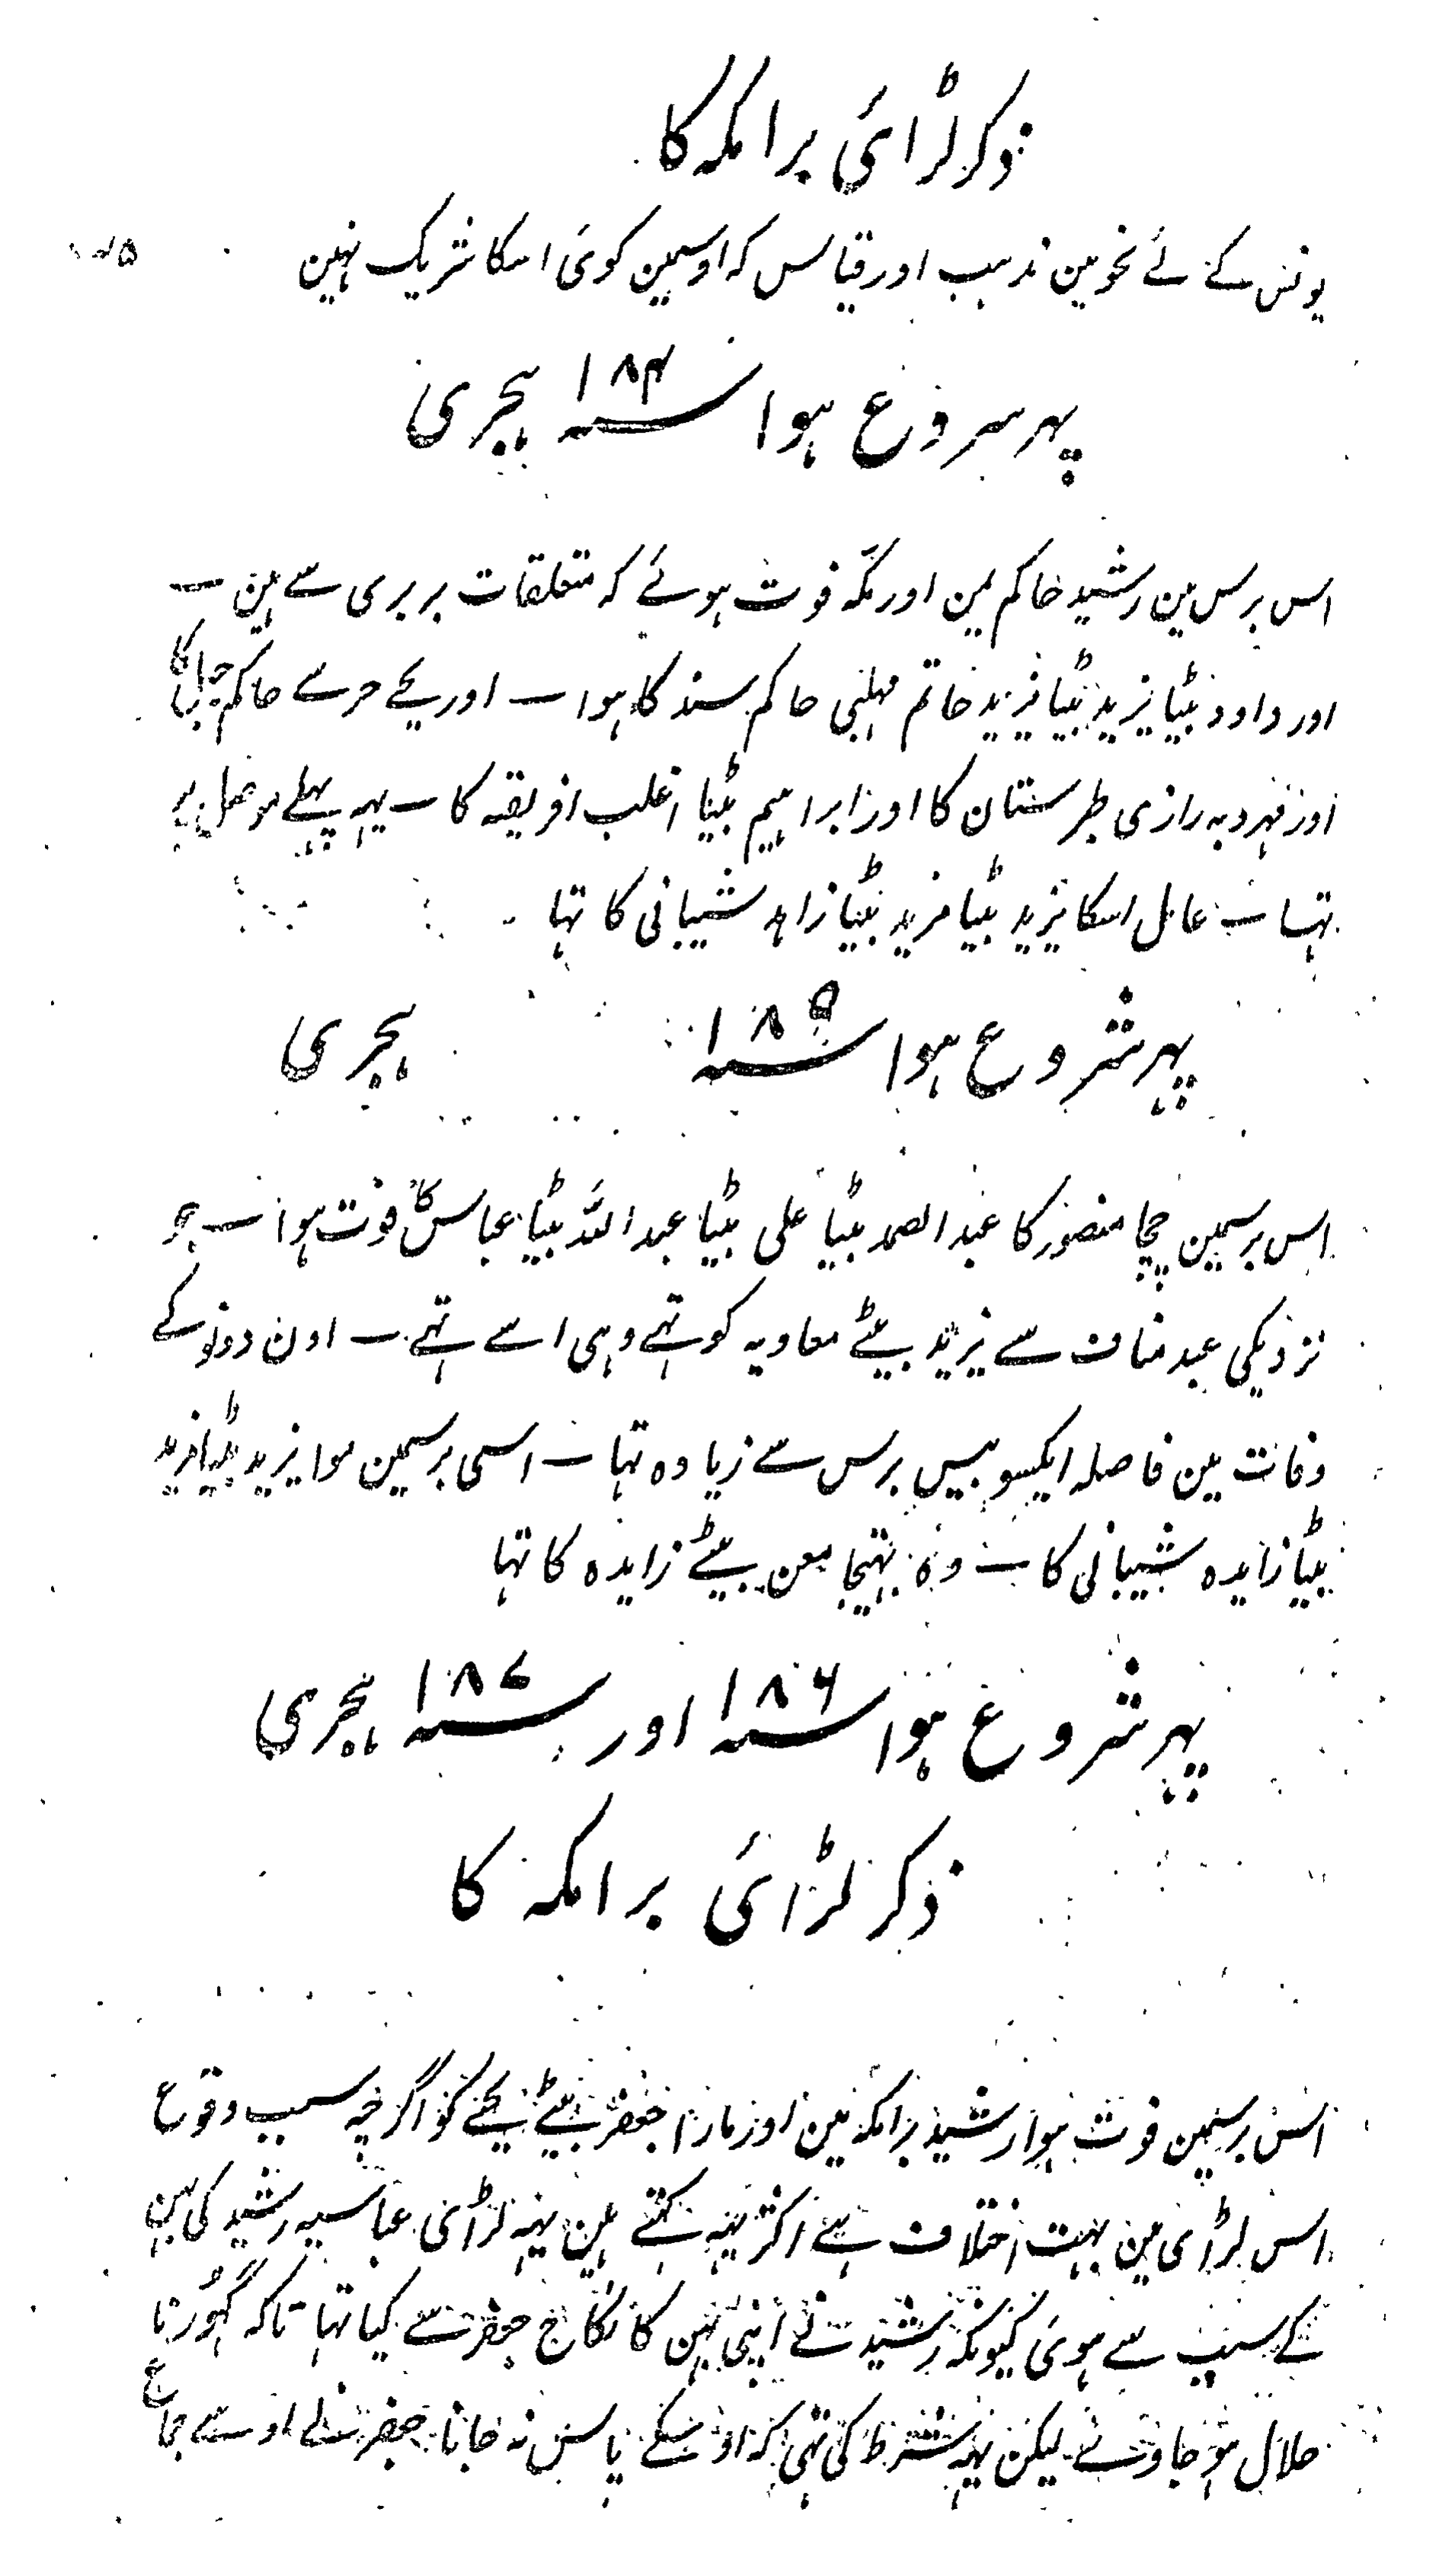 ذکر لڑائی برامکہ کا
یونس کے لئے نحو مین مذہب اور قیاس کہ اوسمین کوئی اسکا شریک نہین
پہر سروع ہوا سنہ ۱۸۴ ہجری
اس برس مین رشید حاکم یمن اور مکہ فوت ہوئے کہ متعلقات بربری سے ہین ۔
اور داود بیٹا یزید بیٹا یزید خاتم مہلبی حاکم سند کا ہوا ۔ اور یحے حرسے حاکم جبل کا
اور مہرویہ رازی طبرستان کا اور ابراہیم بیٹا اغلب افریقہ کا ۔ یہہ پہلے موصل پر
تہا ۔ عامل اسکا یزید بیٹا مزید بیٹیا زاہد شیبانی کا تہا ۔
پہر شروع ہوا سنہ ۱۸۵ ہجری
اس برسمین چچا منصور کا عبد الصمد بیٹیا علی بیٹیا عبد اللہ بیٹیا عباس کا فوت ہوا ۔ جو
نزدیکی عبد مناف سے یزید بیٹے معاویہ کو تہے وہی اسے تہے ۔ اون دونو کے
وفات مین فاصلہ ایکسو بیس برس سے زیادہ تہا ۔ اسی برسمین موا یزید بیٹیا مزید
بیٹیا زایدہ شیبانی کا ۔ وہ بہتیجا معن بیٹے زایدہ کا تہا
پہر شروع ہوا سنہ ۱۸۶ اور سنہ ۱۸۷ ہجری
ذکر لڑائی برامکہ کا
اس برسمین فوت ہوا رشید برامکہ مین اور مارا جعفر بیٹے یحے کو اگرچہ سبب وقوع
اس لڑائی مین بہت اختلاف ہے اکثر یہہ کہتے ہین یہہ لڑائی عباسیہ رشید کی بہن
کے سبب سے ہوئی کیونکہ رشید نے اپنی بہن کا نکاح جعفر سے کیا تہا تاکہ گہورنا
حلال ہو جاوے لیکن یہہ شرط کی تہی کہ اوسکے پاس نہ جانا جعفر نے اوسے جماع